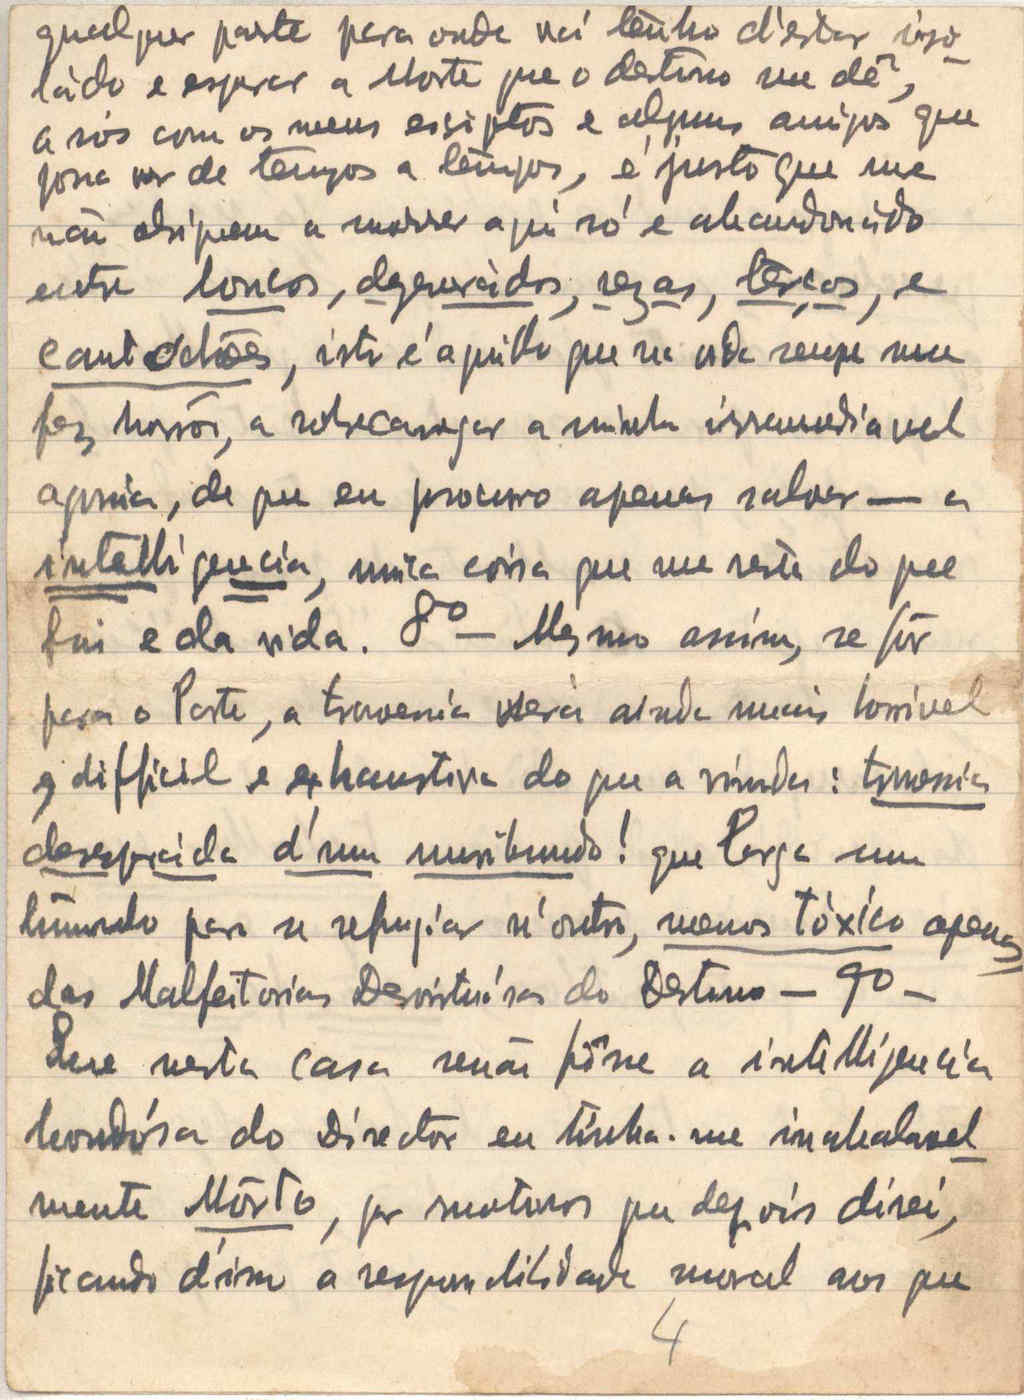 qualquer parte para onde vá tenho d'estar iso-
lado e esperar a Morte que o destino me dê,
a sós com os meus escriptos e alguns amigos que
possa ver de tempos a tempos, é justo que me
não obriguem a morrer aqui só e abandonado
entre loucos, degenerados, rezas, têrços, e
cantochões, isto é aquillo que na vida sempre me
fez horrôr, a sobrecarregar a minha irremediavel
agonia, de que eu procuro apenas salvar — a
intelligencia, unica coisa que me resta do que
fui e da vida. 8º — Mesmo assim, se fôr
para o Porto, a travessia será ainda mais horrivel
e difficil e exhaustiva do que a vinda: travessia
desesperada d'um muribundo! que larga um
tumulo para se refugiar n'outro, menos tóxico apenas
das Malfeitorias do Destino — 9º —
Que nesta casa senão fôsse a intelligencia
bondósa do Director eu tinha-me inabalavel
mente Môrto, por motivos que depois direi,
ficando d'isso a responsabilidade moral aos que
4